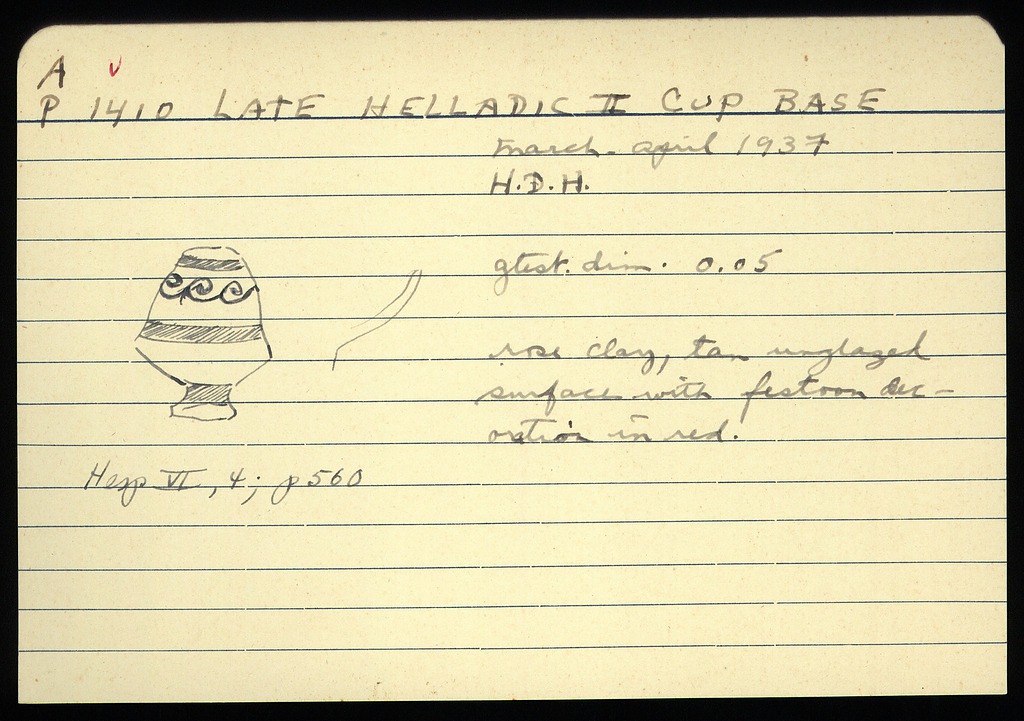 A
P 1410 LATE HELLADIC II CUP BASE
March - April 1937
H.D.H.
gtest. dim. 0.05
rose clay, tan unglazed
surface with festoon dec-
oration in red.
Hesp VI, 4; p 560